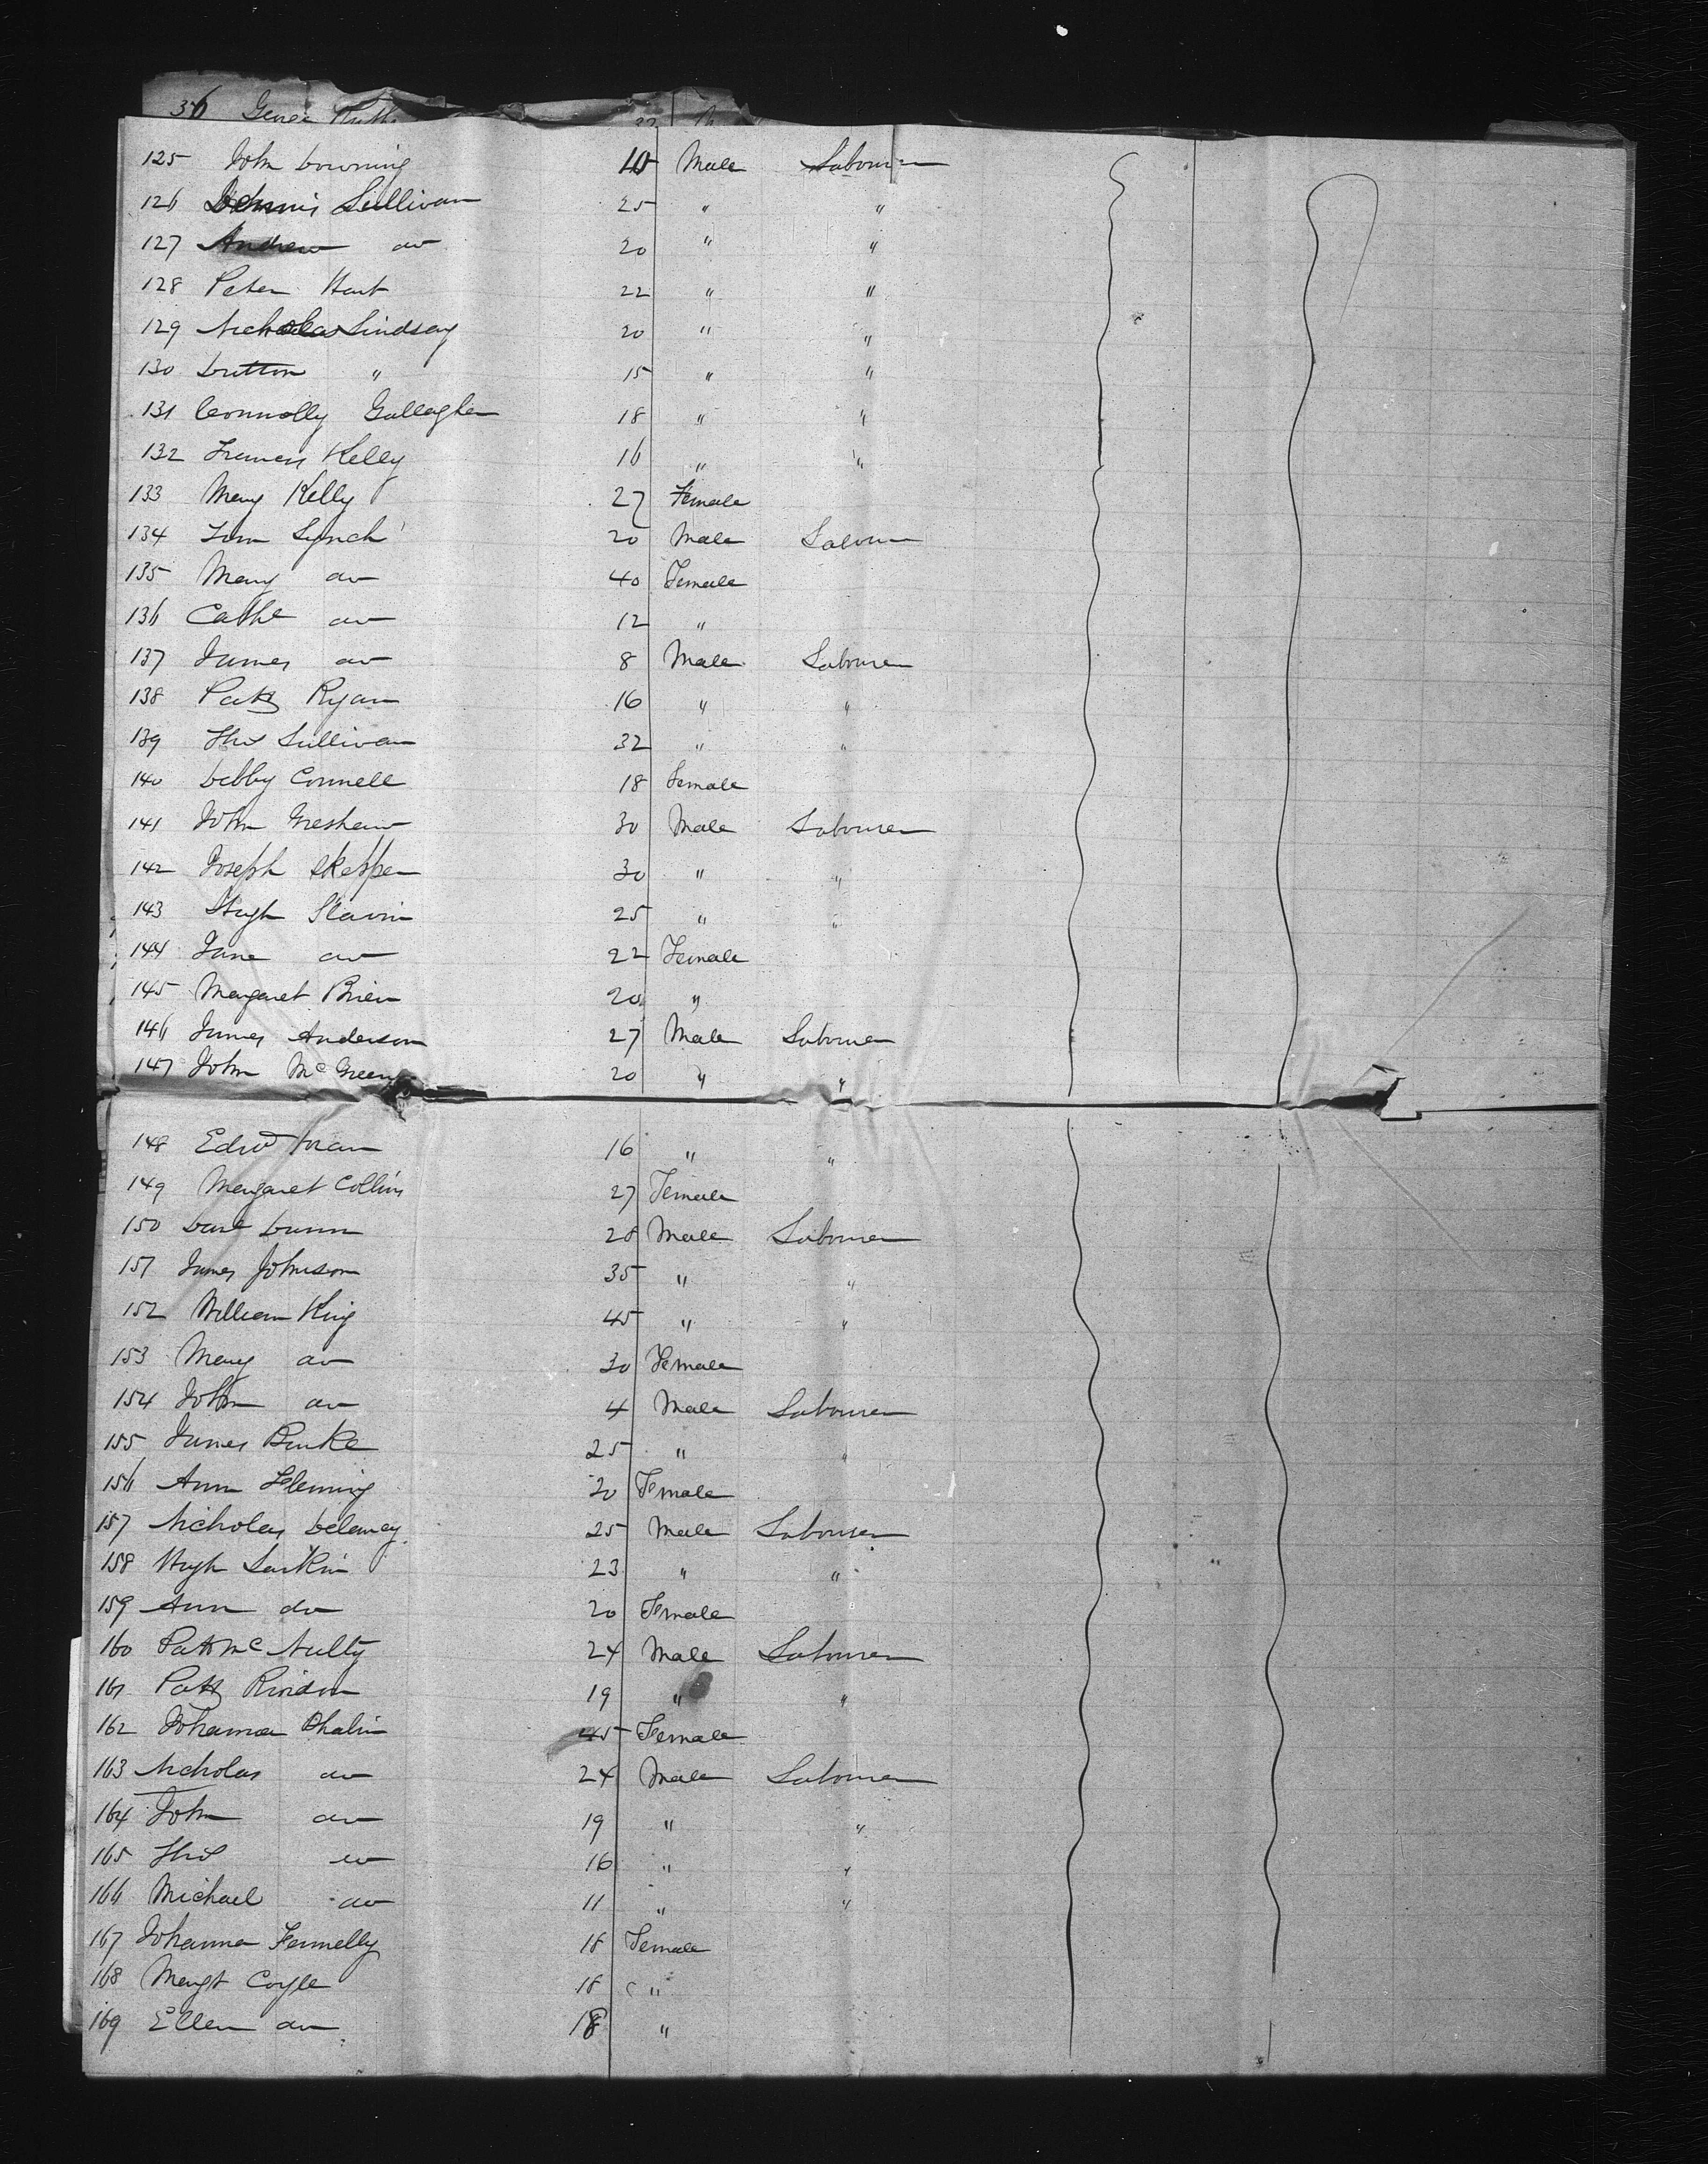 36 George
125 John Downing 10 Male Labourer
126 Dennis Sullivan 25 " "
127 Andrew do 20 " "
128 Peter Hart 22 " "
129 Nicholas Lindsay 20 " "
130 Dutton " 15 " "
131 Connolly Gallagher 18 " "
132 Francis Kelly 16 " "
133 Mary Kelly 27 Female
134 Tim Lynch 20 Male Labourer
135 Mary do 40 Female
136 Cathe do 12 "
137 James do 8 Male Labourer
138 Patk Ryan 16 " "
139 Thos Sullivan 32 " "
140 Debby Connell 18 Female
141 John Gresham 30 Male Labourer
142 Joseph Skepper 30 " "
143 Hugh Slavin 25 " "
144 Jane do 22 Female
145 Margaret Brien 20 "
146 James Anderson 27 Male Labourer
147 John McGreevy 20 " "
148 Edwd 16 " "
149 Margaret Collins 27 Female
150 Danl Dunn 28 Male Labourer
151 James Johnson 35 " "
152 William King 45 " "
153 Mary do 30 Female
154 John do 4 Male Labourer
155 James Burke 25 " "
156 Ann Fleming 20 Female
157 Nicholas Delaney 25 Male Labourer
158 Hugh Larkin 23 " "
159 Ann do 20 Female
160 Patk McNulty 24 Male Labourer
161 Patk Riordon 19 " "
162 Johanna Phalin 45 Female
163 Nicholas do 24 Male Labourer
164 John do 19 " "
165 Thos do 16 " "
166 Michael do 11 " "
167 Johanna Fennelly 18 Female
168 Margt Coyle 18 "
169 Ellen do 18 "